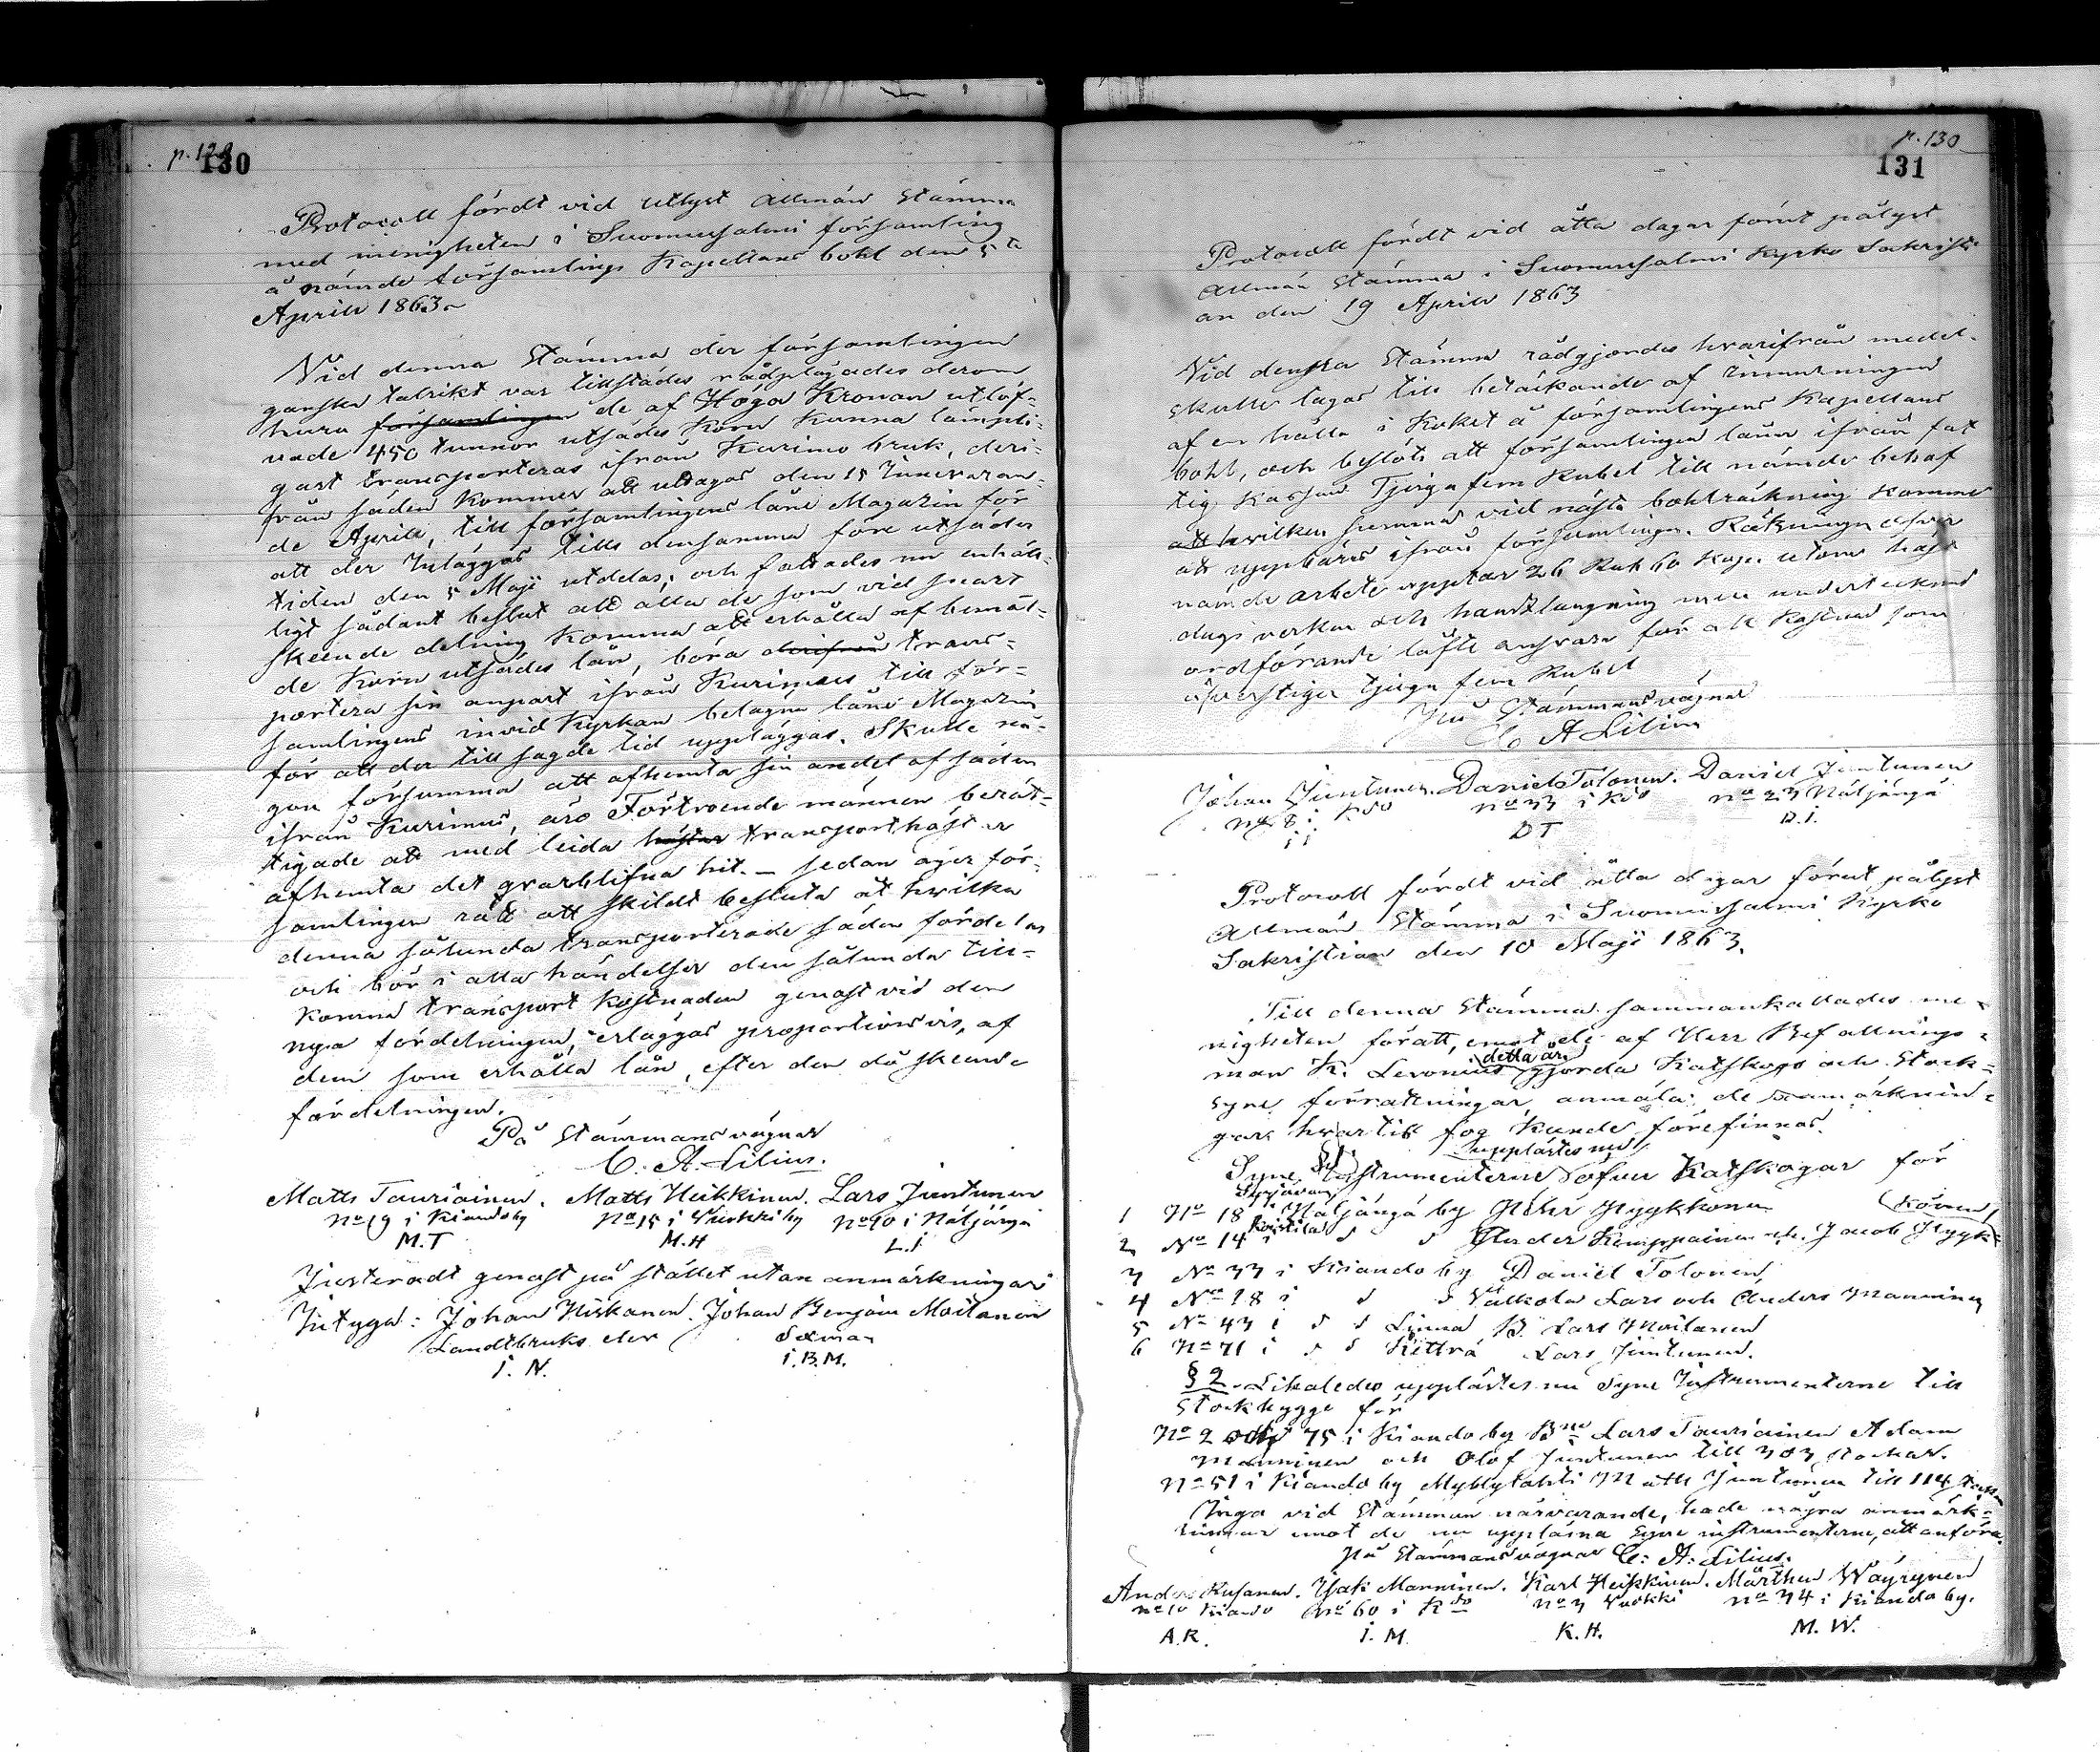 p. 129
130
Protocoll fördt vid utlyst allmän Stämma
med menigheten i Suomussalmi församling
å nämde församlings Kapellans bohl den 5te
April 1863.
Vid denna Stämma der församlingen
ganska talrikt var tillstädes rådplägades derom
huru församlingen de af Höga Kronan utlof=
vade 450 tunnor utsädes Korn kunna lämpli=
gast transporteras ifrån Kurimo bruk, deri=
från säden kommer att uttagas den 15 Innevaran=
de April, till församlingens låne Magazin för
att der Inläggas tills densamma före utsädes
tiden den 5 Maji utdelas; och fattades nu enhäl=
ligt sådant beslut att alla de som vid snart
skeende delning komma att erhålla af bemäl=
de Korn utsädes lån, böra derifrån trans=
portera sin anpart ifrån Kurimus till för=
samlingens invid Kyrkan belägna låne Magazin
för att der till sagde tid uppläggas. Skulle nå=
gon försumma att afhemta sin andel af säden
ifrån Kurimus, äro Förtroende männen berät=
tigade att med leida hästar transporthäster
afhemta det qvarblifna hit. – sedan äger för=
samlingen rätt att skildt besluta åt hvilka
denna sålunda transporterade säden fördelas
och bör i alla händelser den sålunda till=
komna transport kostnaden genast vid den
nya fördelningen, erläggas proportionsvis, af
dem som erhålla lån, efter den då skeende
fördelningen.
På Stämmans vägnar
C. A. Lilius.
Matts Tauriainen. Matts Heikkinen. Lars Juntunen
No 19 i Kiando by No 15 i Vuokki by No 10 i Näljängä
M.T M.H L.J
Justeradt genast på stället utan anmärkningar
Intyga: Johan Kiskanen. Johan Benjam Moilanen
Landtbruks elev Sexman
J. N. J.B.M.
p. 130
131
Protocoll fördt vid åtta dagar förut pålyst
Allmän Stämma i Suomussalmi Kyrko Sakristi
an den 19 April 1863
Vid denna Stämma rådgjordes hvarifrån medel
skulle tagas till betäckande af inmurningen
af en hälla i Köket å församlingens Kapellans
bohl, och beslöts att församlingen lånar ifrån fat
tig Kassan Tjugu fem Rubel till nämde behof
att hvilken summa vid nästa bohlräkning kommer
att uppbäras ifrån församlingen. Räkningen öfver
nämde arbete upptar 26 Rub 60 Kop. utom häst
dags verken och handtlangning men undertecknad
ordförande låfte ansvara för all kostnad som
öfverstiger tjugu fem Rubel
På Stämmans vägnar
C A Lilius
Johan Juntunen. Daniel Tolonen. Daniel Juntunen
No 8 i Kdo No 33 i Kdo No 23 Näljängä
J J D T D. J.
Protocoll fördt vid åtta dagar förut pålyst
Allmän Stämma i Suomussalmi Kyrko
Sakristian den 10 Maji 1863.
Till denna Stämma sammankallades me=
nigheten föratt, emot de af Herr Befallnings=
man K. Levonius detta år gjorda Katskogs och Stock=
syne förrättningar anmäla de anmärknin=
gar hvartill fog kunde förefinnas.
§ 1. upplästes nu
Syne Instrumenterne öfver Katskogar för
1 No 18 i Näljängä by Petter Hyykkonen
2 No 14 i Koistila d d Anders Kemppainen och Jacob Hyyk= könen
3 No 33 i Kiando by Daniel Tolonen,
4 No 18 i d d Valkola Lars och Anders Manninen
5 No 43 i d d Linna B. Lars Moilanen
6 No 71 i d d Kitträ Lars Juntunen.
§ 2. Likaledes upplästes nu Syne Instrumenterne till
Stockhygge för
No 2 och 75 i Kiando by Bne Lars Tauriainen Adam
Manninen och Olof Juntunen till 303 stockar.
No 51 i Kiando by Myllylahti Matts Juntunen till 114 stockar
Inga vid Stämman närvarande, hade några anmärk=
ningar emot de nu upplästa Syne instrumenterne, att anföra.
På Stämmans vägnar C: A: Lilius.
Anders Kusanen. Isak Manninen. Karl Heikkinen. Mårthen Wäyrynen
No 10 Kiando No 60 i Kdo No 3 Vuokki No 34 i Kiando by.
A.K. I. M. K. H. M. W.